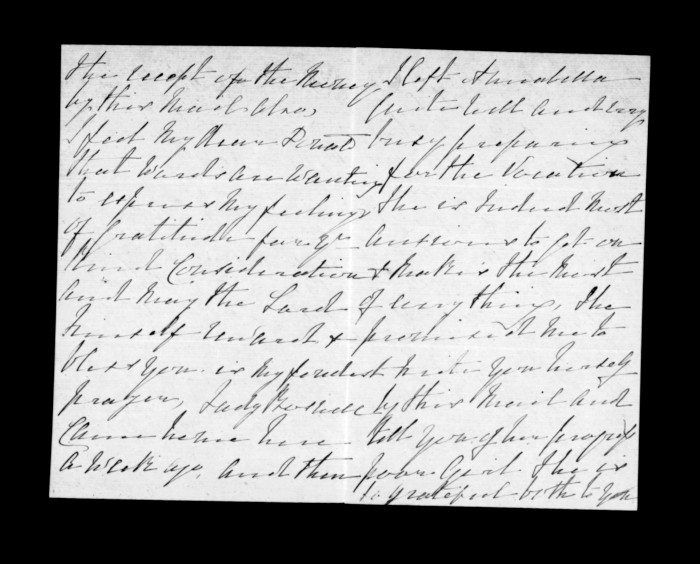 the receipt of the Money
by this Mail also,
I feel My dear Donald
that words are wanting
to express My feelings
of Gratitude for yr
kind Consideration &
and May the Lord
himself reward &
bless you is My fondest
prayer, Lady
Came home here
a Week ago. and then
I left Annabella
quite well and very
busy preparing
for the Vacation
She is Indeed Most
anxious to get on
& Makes the Most
of everything, She
promised Me to
write you herself
by this Mail and
tell you of her progress
poor Girl She is
so grateful both to you